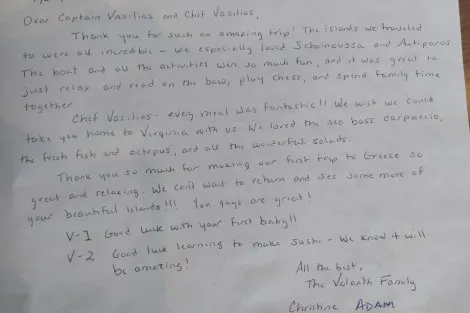 Dear Captain Vasilias and Chef Vasilias,
Thank you for such an amazing trip! The islands we traveled
to were all incredible - we especially loved Schoinoussa and Antiparos
The boat and all the activities were so much fun, and it was great to
just relax and read on the bow, play chess, and spend family time
together
Chef Vasilias - every meal was fantastic!! We wish we could
take you home to Virginia with us. We loved the sea bass carpaccio,
the fresh fish and octopus, and all the wonderful salads.
Thank you so much for making our first trip to Greece so
great and relaxing. We can't wait to return and see some more of
your beautiful islands!!! You guys are great!
V-1 Good luck with your first baby!!
V-2 Good luck learning to make sushi - we know it will
be amazing!
All the best,
The Velanth Family
Christine ADAM